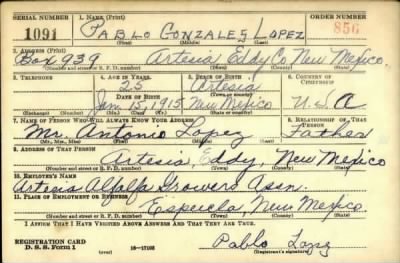 SERIAL NUMBER 1. NAME (Print) ORDER NUMBER
1091 PABLO GONZALES LOPEZ 856
(First) (Middle) (Last)
2. ADDRESS (Print)
Box 939 Artesia, Eddy Co, New Mexico.
(Number and street or R. F. D. number) (Town) (County) (State)
3. TELEPHONE 4. AGE IN YEARS 5. PLACE OF BIRTH 6. COUNTRY OF CITIZENSHIP
25 Artesia
DATE OF BIRTH (Town or county)
Jan 15, 1915 New Mexico U.S.A
(Exchange) (Number) (Mo.) (Day) (Yr.) (State or country)
7. NAME OF PERSON WHO WILL ALWAYS KNOW YOUR ADDRESS 8. RELATIONSHIP OF THAT PERSON
Mr. Antonio Lopez Father
(Mr., Mrs., Miss) (First) (Middle) (Last)
9. ADDRESS OF THAT PERSON
Artesia, Eddy, New Mexico
(Number and street or R. F. D. number) (Town) (County) (State)
10. EMPLOYER'S NAME
Artesia Alfalfa Growers Assn.
11. PLACE OF EMPLOYMENT OR BUSINESS
New Mexico
(Number and street or R. F. D. number) (Town) (County) (State)
I AFFIRM THAT I HAVE VERIFIED ABOVE ANSWERS AND THAT THEY ARE TRUE.
REGISTRATION CARD
D. S. S. Form 1 (over) Pablo Lopez
(Registrant's signature)